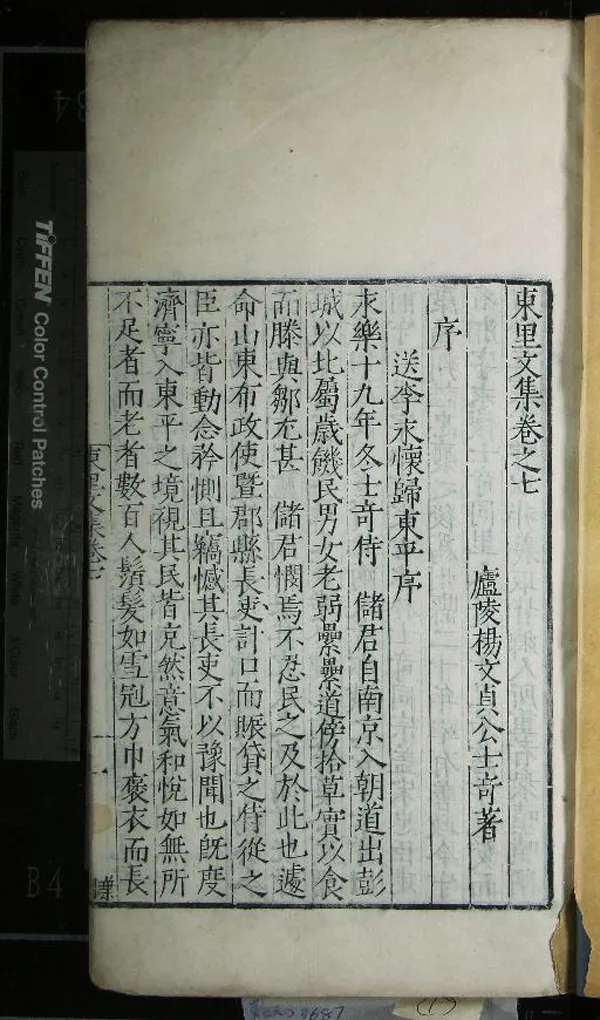 東里文集卷之七
廬陵楊文貞公士奇著
序
送李永懷歸東平序
永樂十九年冬士奇侍 儲君自南京入朝道出彭
城以北屬歲饑民男女老弱纍纍道傍拾草實以食
而滕與鄒尤甚 儲君憫焉不忍民之及於此也遽
命山東布政使暨郡縣長吏計口而賑貸之侍從之
臣亦皆動念矜惻且竊憾其長吏不以豫聞也旣度
濟寧入東平之境視其民皆充然意氣和悅如無所
不足者而老者數百人鬚髮如雪冠方巾褒衣而長
東里文集卷七
一
TIFFEN Color Control Patches
B4